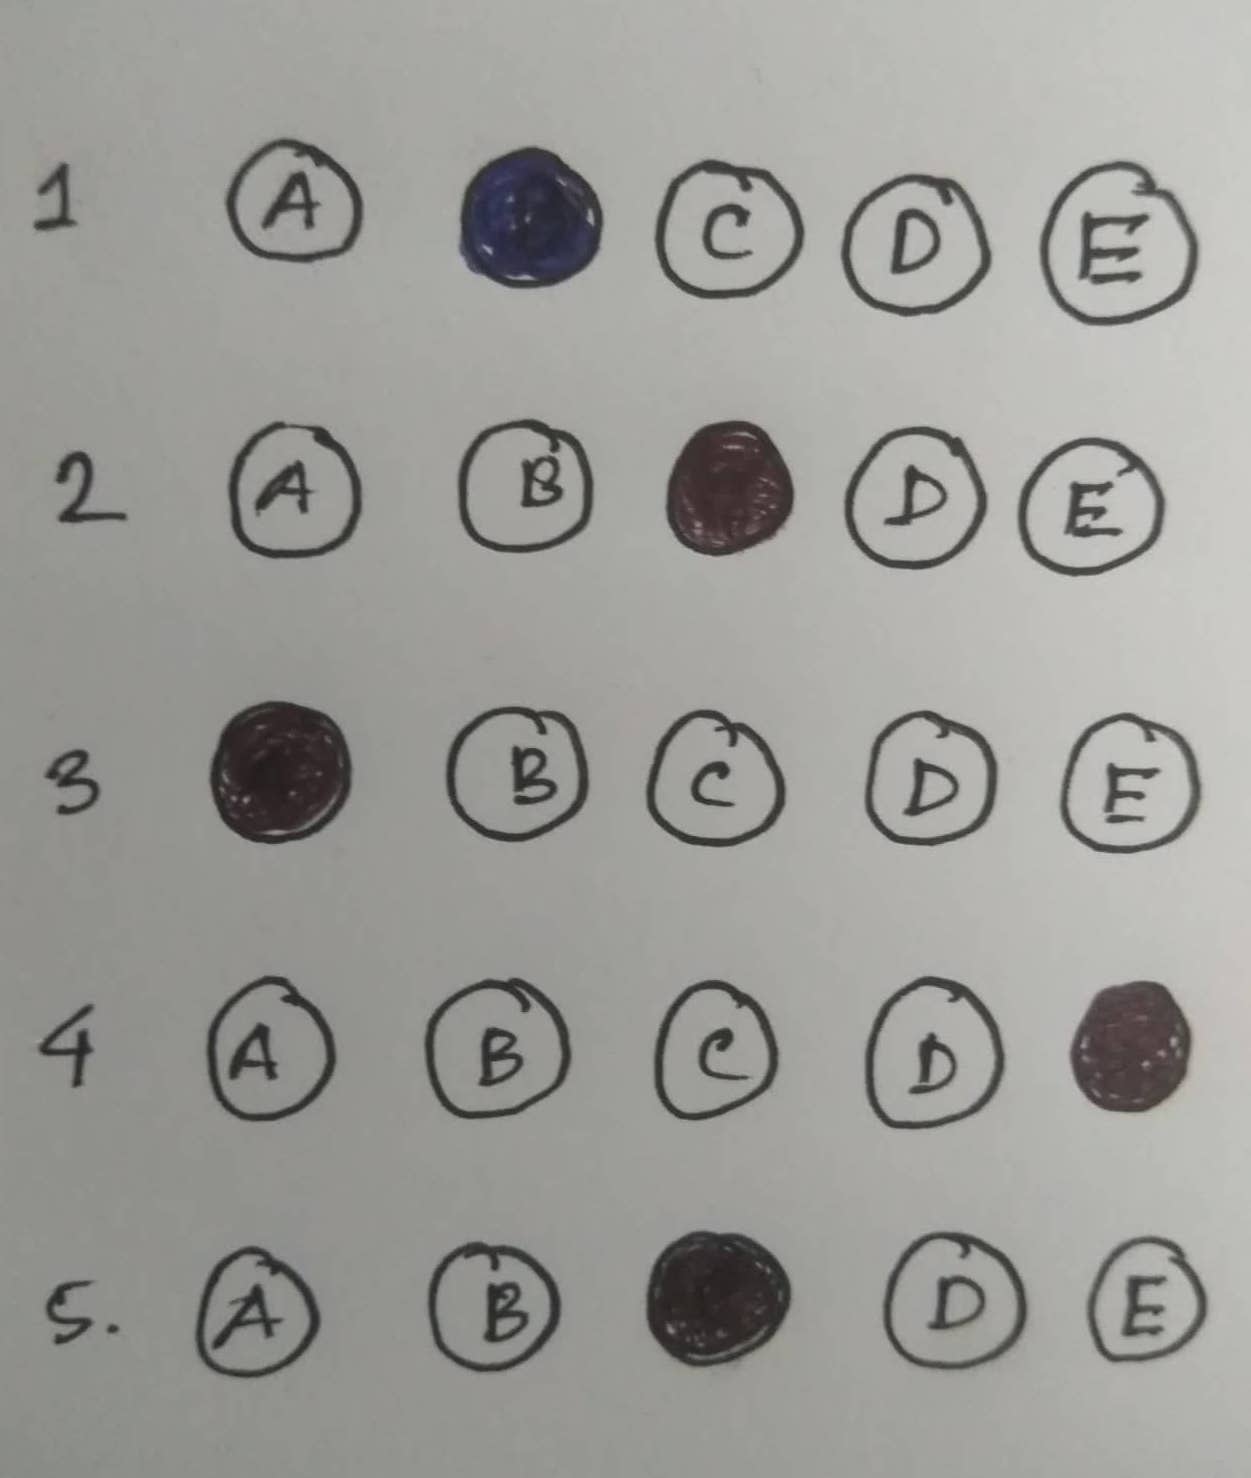 1 A C D E
2 A B D E
3 B C D E
4 A B C D
5. A B D E